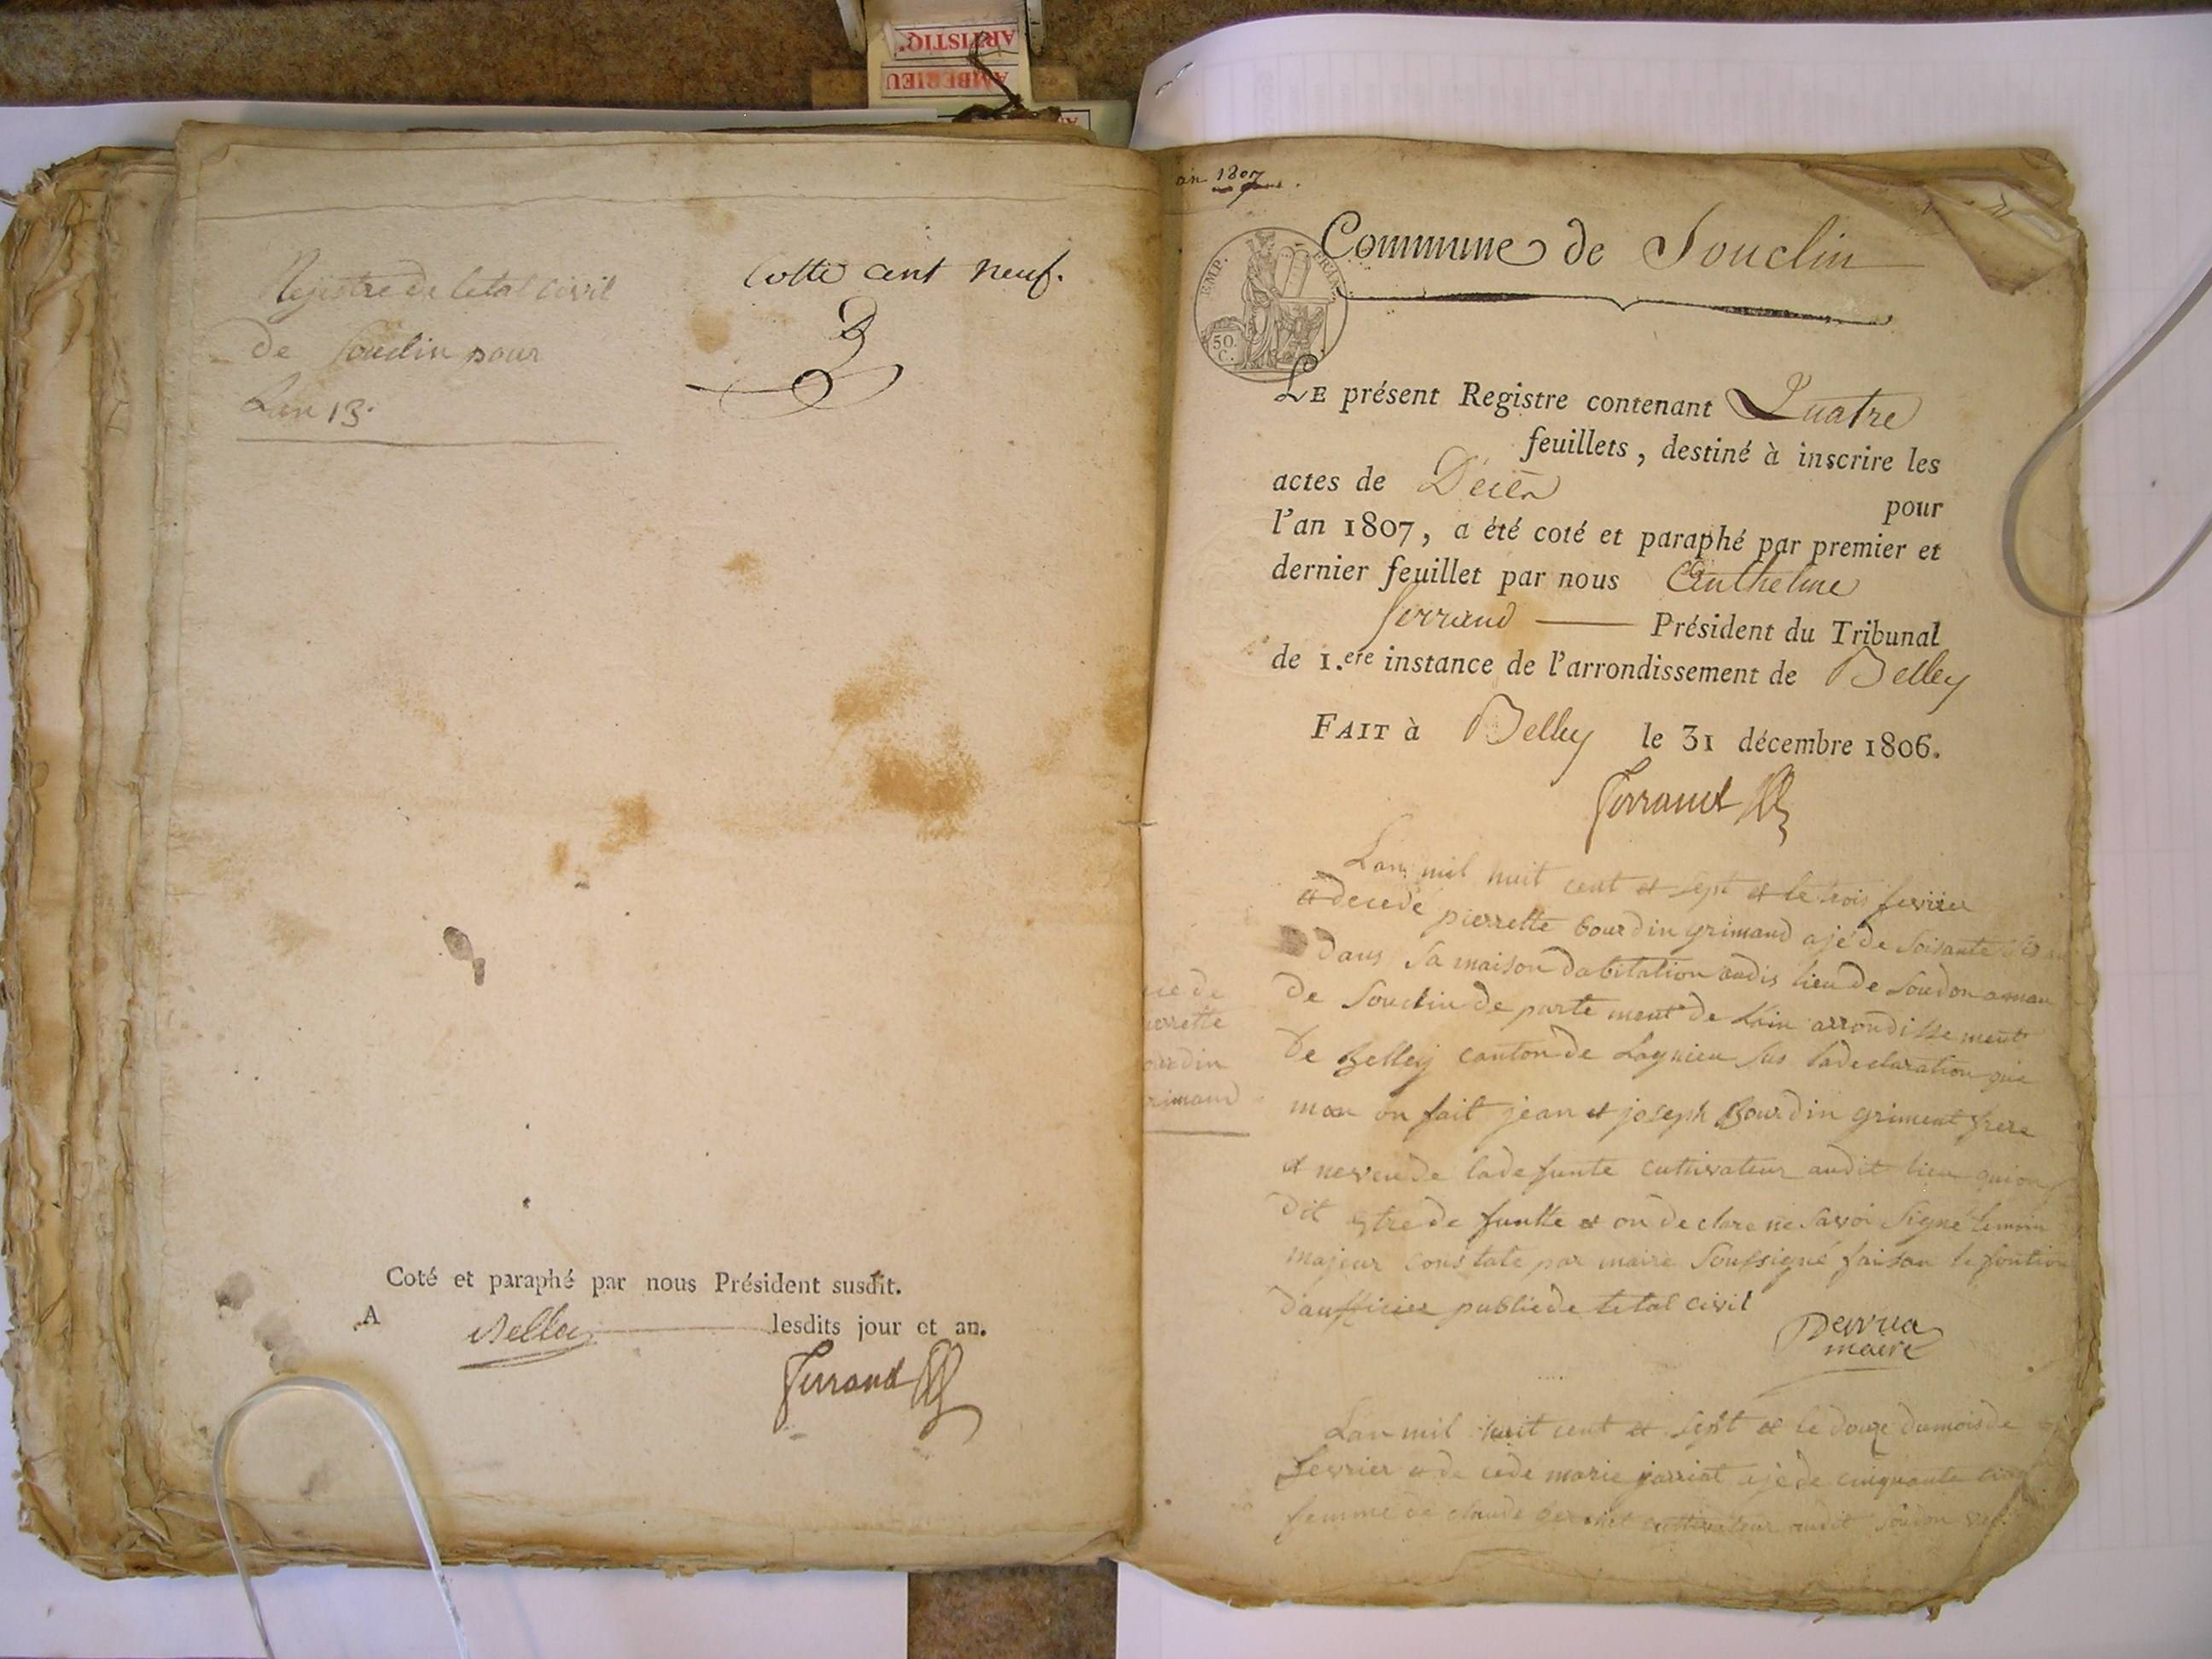 ARTISTIQ'
AMBERIEU
Registre de letat civil
de Souclin pour
Lan 13.
Cotté cent neuf.
Coté et paraphé par nous Président susdit.
A Belley lesdits jour et an.
Ferrand
an 1807
Commune de Souclin
EMP. FRAN.
50.
C.
LE présent Registre contenant Quatre
feuillets, destiné à inscrire les
actes de Décès
pour
l'an 1807, a été coté et paraphé par premier et
dernier feuillet par nous Anthelme
Ferrand Président du Tribunal
de 1.ere instance de l'arrondissement de Belley
FAIT à Belley le 31 décembre 1806.
Ferrand
Lan mil huit cent et sept et le trois fevrier
et decedé pierrette bourdin grimand ajé de soisante
dans sa maison dabitation audis lieu de Soudon
de Souclin de parte ment de Lain arrondisse ment
De Belley canton de Lagnieu sus ladeclaration que
mon on fait jean et joseph Bourdin griment frere
et neveu de ladefunte cultivateur audit lieu qui on
dit estre de funtte et on declare ne savoi signé temoin
majeur constate par maire soussigné faisan le fontion
daufficier publie de letat civil
ce de
ierrette
ourdin
rimand
Derrua
maire
Lan mil huit cent et sept et le douze dumois de
fevrier et de cede marie jarriat ajé de cinquante
femme de claude cultivateur audit soudon